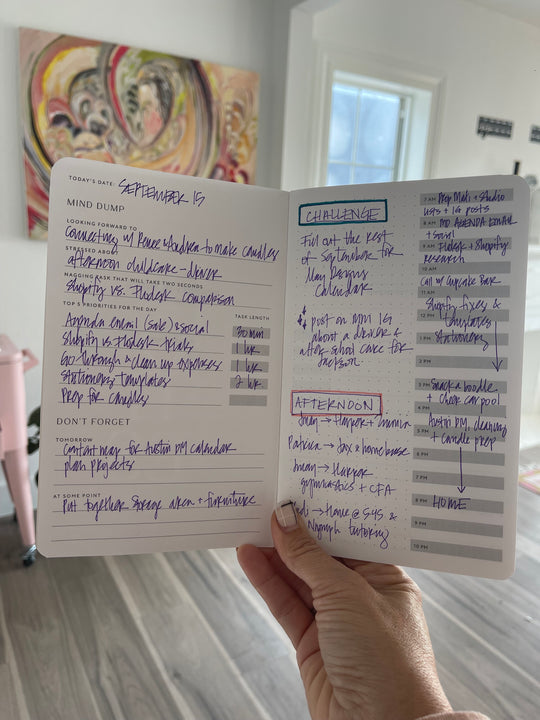 TODAY'S DATE: SEPTEMBER 15
MIND DUMP
LOOKING FORWARD TO
Connecting w/ Renee & Andrea to make candles
STRESSED ABOUT
afternoon childcare - driver
NAGGING TASK THAT WILL TAKE TWO SECONDS
Shopify vs. Flodesk comparison
TOP 5 PRIORITIES FOR THE DAY
TASK LENGTH
Agenda email (sale) & social 30 min
Shopify vs Flodesk trials 1 hr
Go through & clean up expenses 1 hr
Stationery templates 2 hr
Prep for candles
DON'T FORGET
TOMORROW
Content map for Austin DM calendar
plan projects
AT SOME POINT
Put together storage area + furniture
CHALLENGE
Fill out the rest
of September for
May Designs
Calendar
post on MM IG
about a driver &
after-school care for
Jackson.
AFTERNOON
→ Harper +
Patricia → Jax & homebase
→ Harper
gymnastics + CFA
→ @ SYS &
Nymph tutoring
7 AM Prep Mati + Studio
lists + IG posts
8 AM MD AGENDA EMAIL
+ Social
9 AM Flodesk + Shopify
research
10 AM
Call w/ Cupcake Bar
11 AM
Shopify fixes &
12 PM templates
1 PM Stationery
2 PM
3 PM Snack a boodle
+ cheer carpool
4 PM
Austin DM, cleaning
5 PM + candle prep
6 PM
7 PM
8 PM HOME
9 PM
10 PM